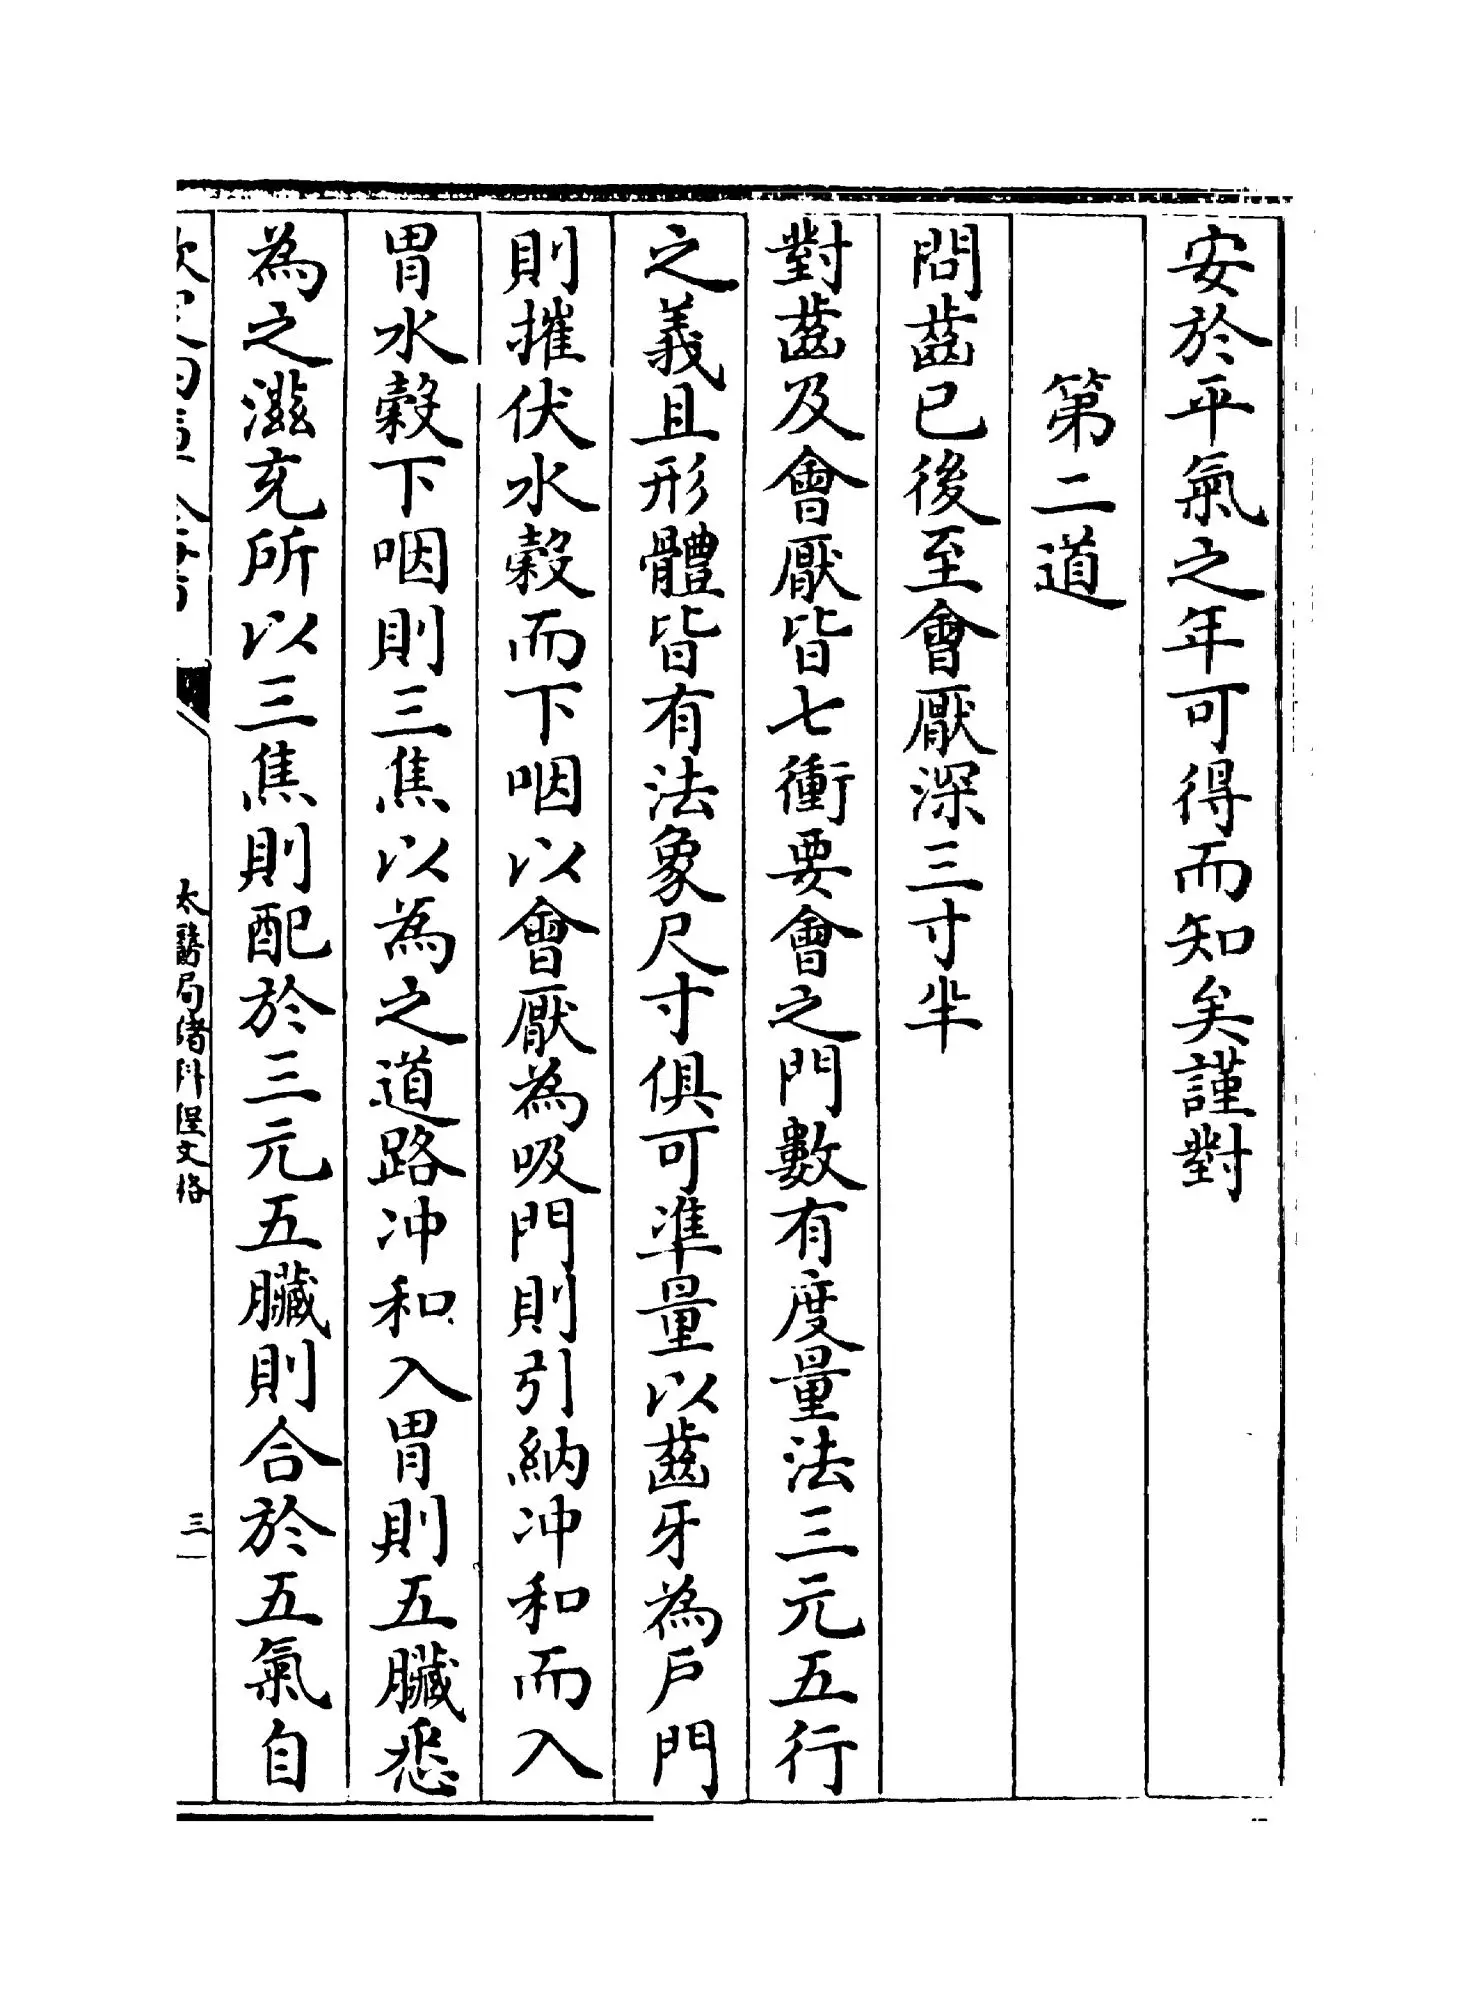 安於平氣之年可得而知矣謹對
第二道
問齒已後至會厭深三寸半
對齒及會厭皆七衝要會之門數有度量法三元五行
之義且形體皆有法象尺寸俱可準量以齒牙為戶門
則摧伏水穀而下咽以會厭為吸門則引納冲和而入
胃水穀下咽則三焦以為之道路冲和入胃則五臟悉
為之滋充所以三焦則配於三元五臟則合於五氣自
欽定四庫全書
太醫局諸科程文格
三